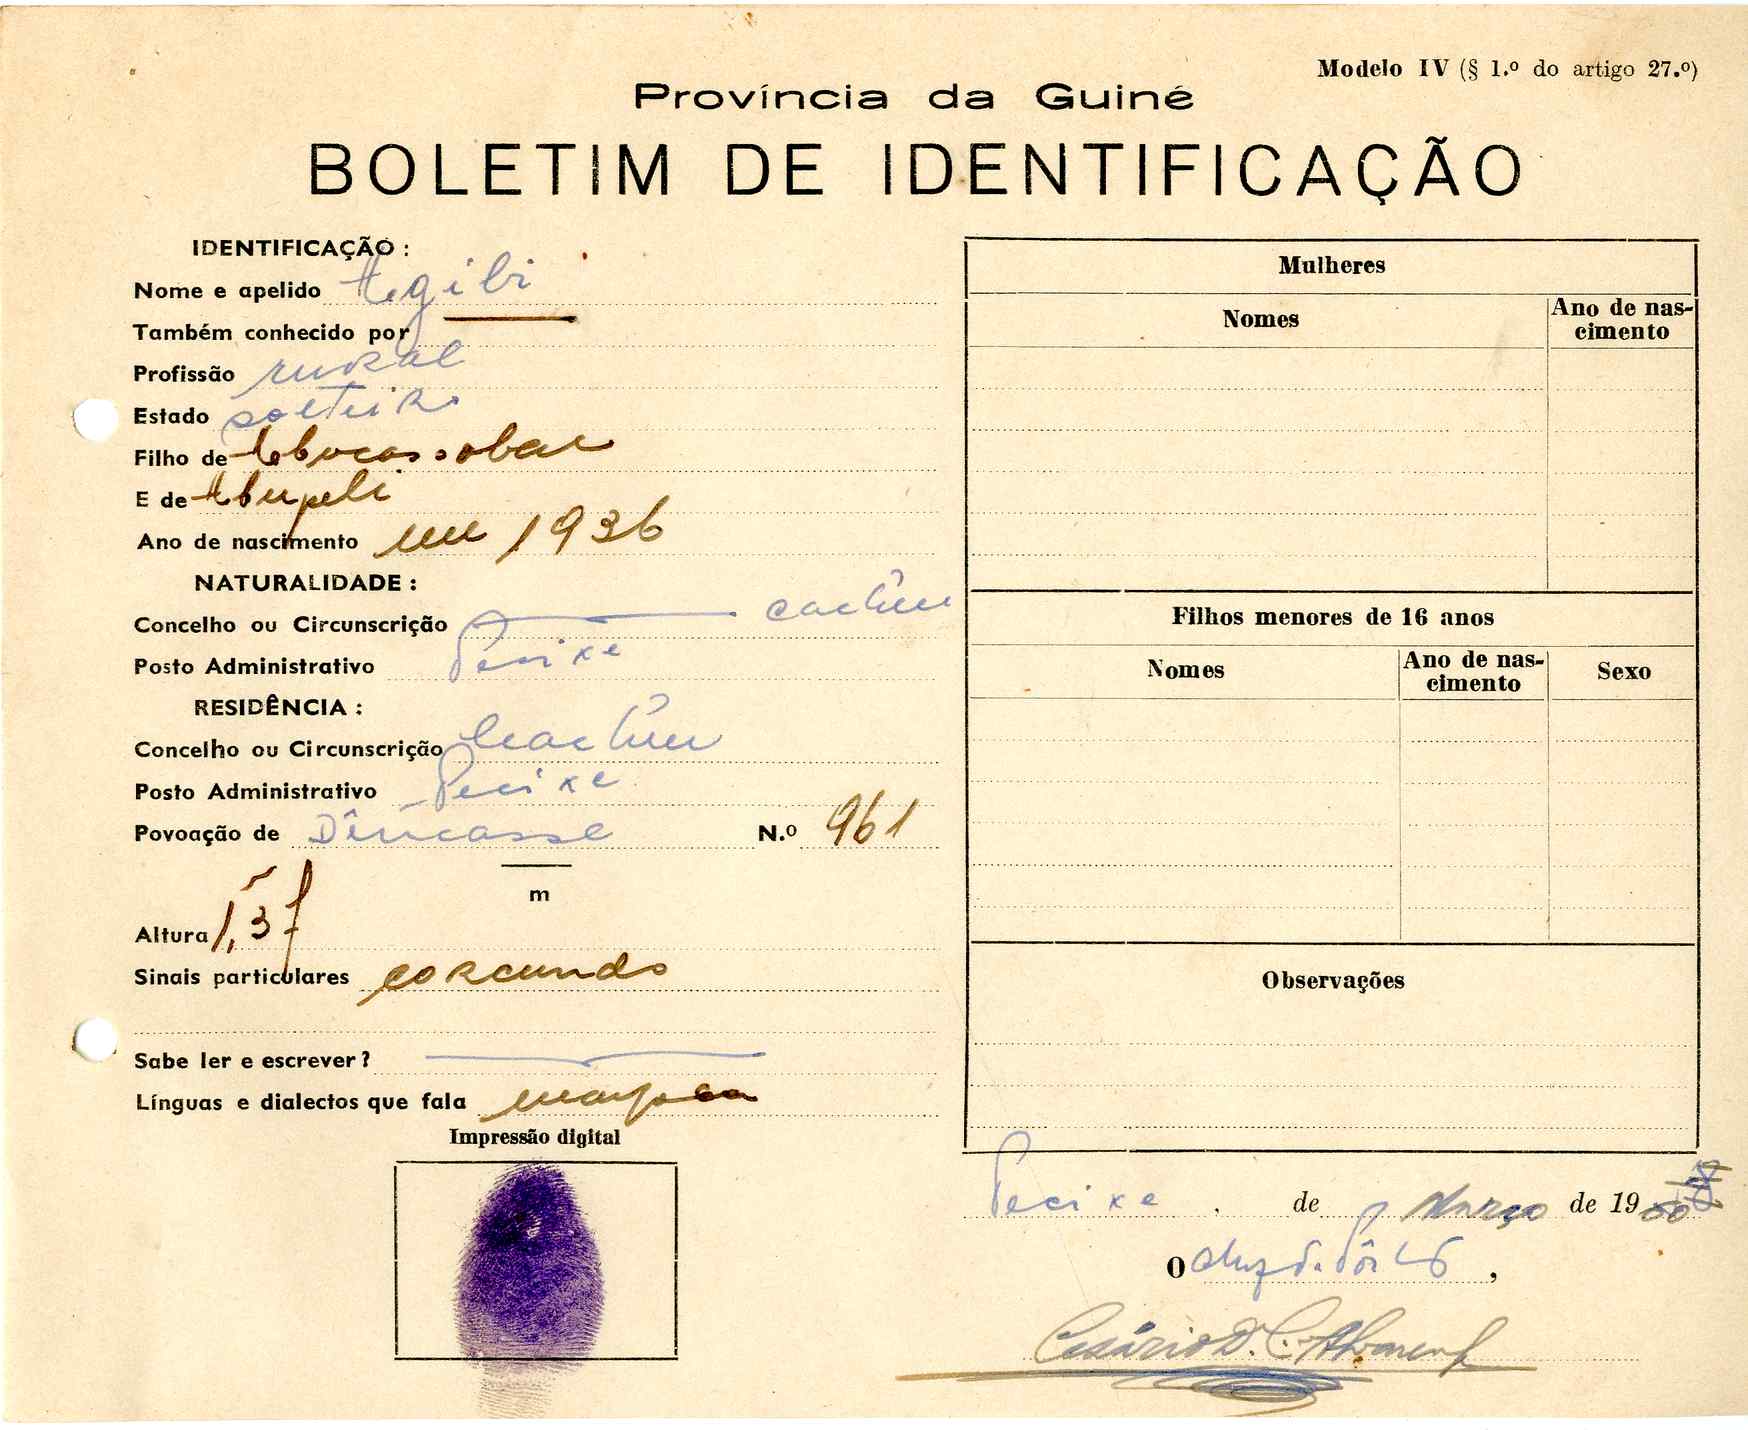 Modelo IV (§ 1.º do artigo 27.º)
Província da Guiné
BOLETIM DE IDENTIFICAÇÃO
IDENTIFICAÇÃO :
Nome e apelido Agibi
Também conhecido por
Profissão rural
Estado solteiro
Filho de
E de Abupeli
Ano de nascimento em 1936
NATURALIDADE :
Concelho ou Circunscrição Cacheu
Posto Administrativo Pecixe
RESIDÊNCIA :
Concelho ou Circunscrição Cacheu
Posto Administrativo Pecixe
Povoação de N.º 961
m
Altura 1,37
Sinais particulares corcundo
Sabe ler e escrever ?
Línguas e dialectos que fala
Impressão digital
Mulheres
Nomes
Ano de nas-
cimento
Filhos menores de 16 anos
Nomes
Ano de nas-
cimento
Sexo
Observações
Pecixe , de Março de 19
O ,
Cesário D. C.